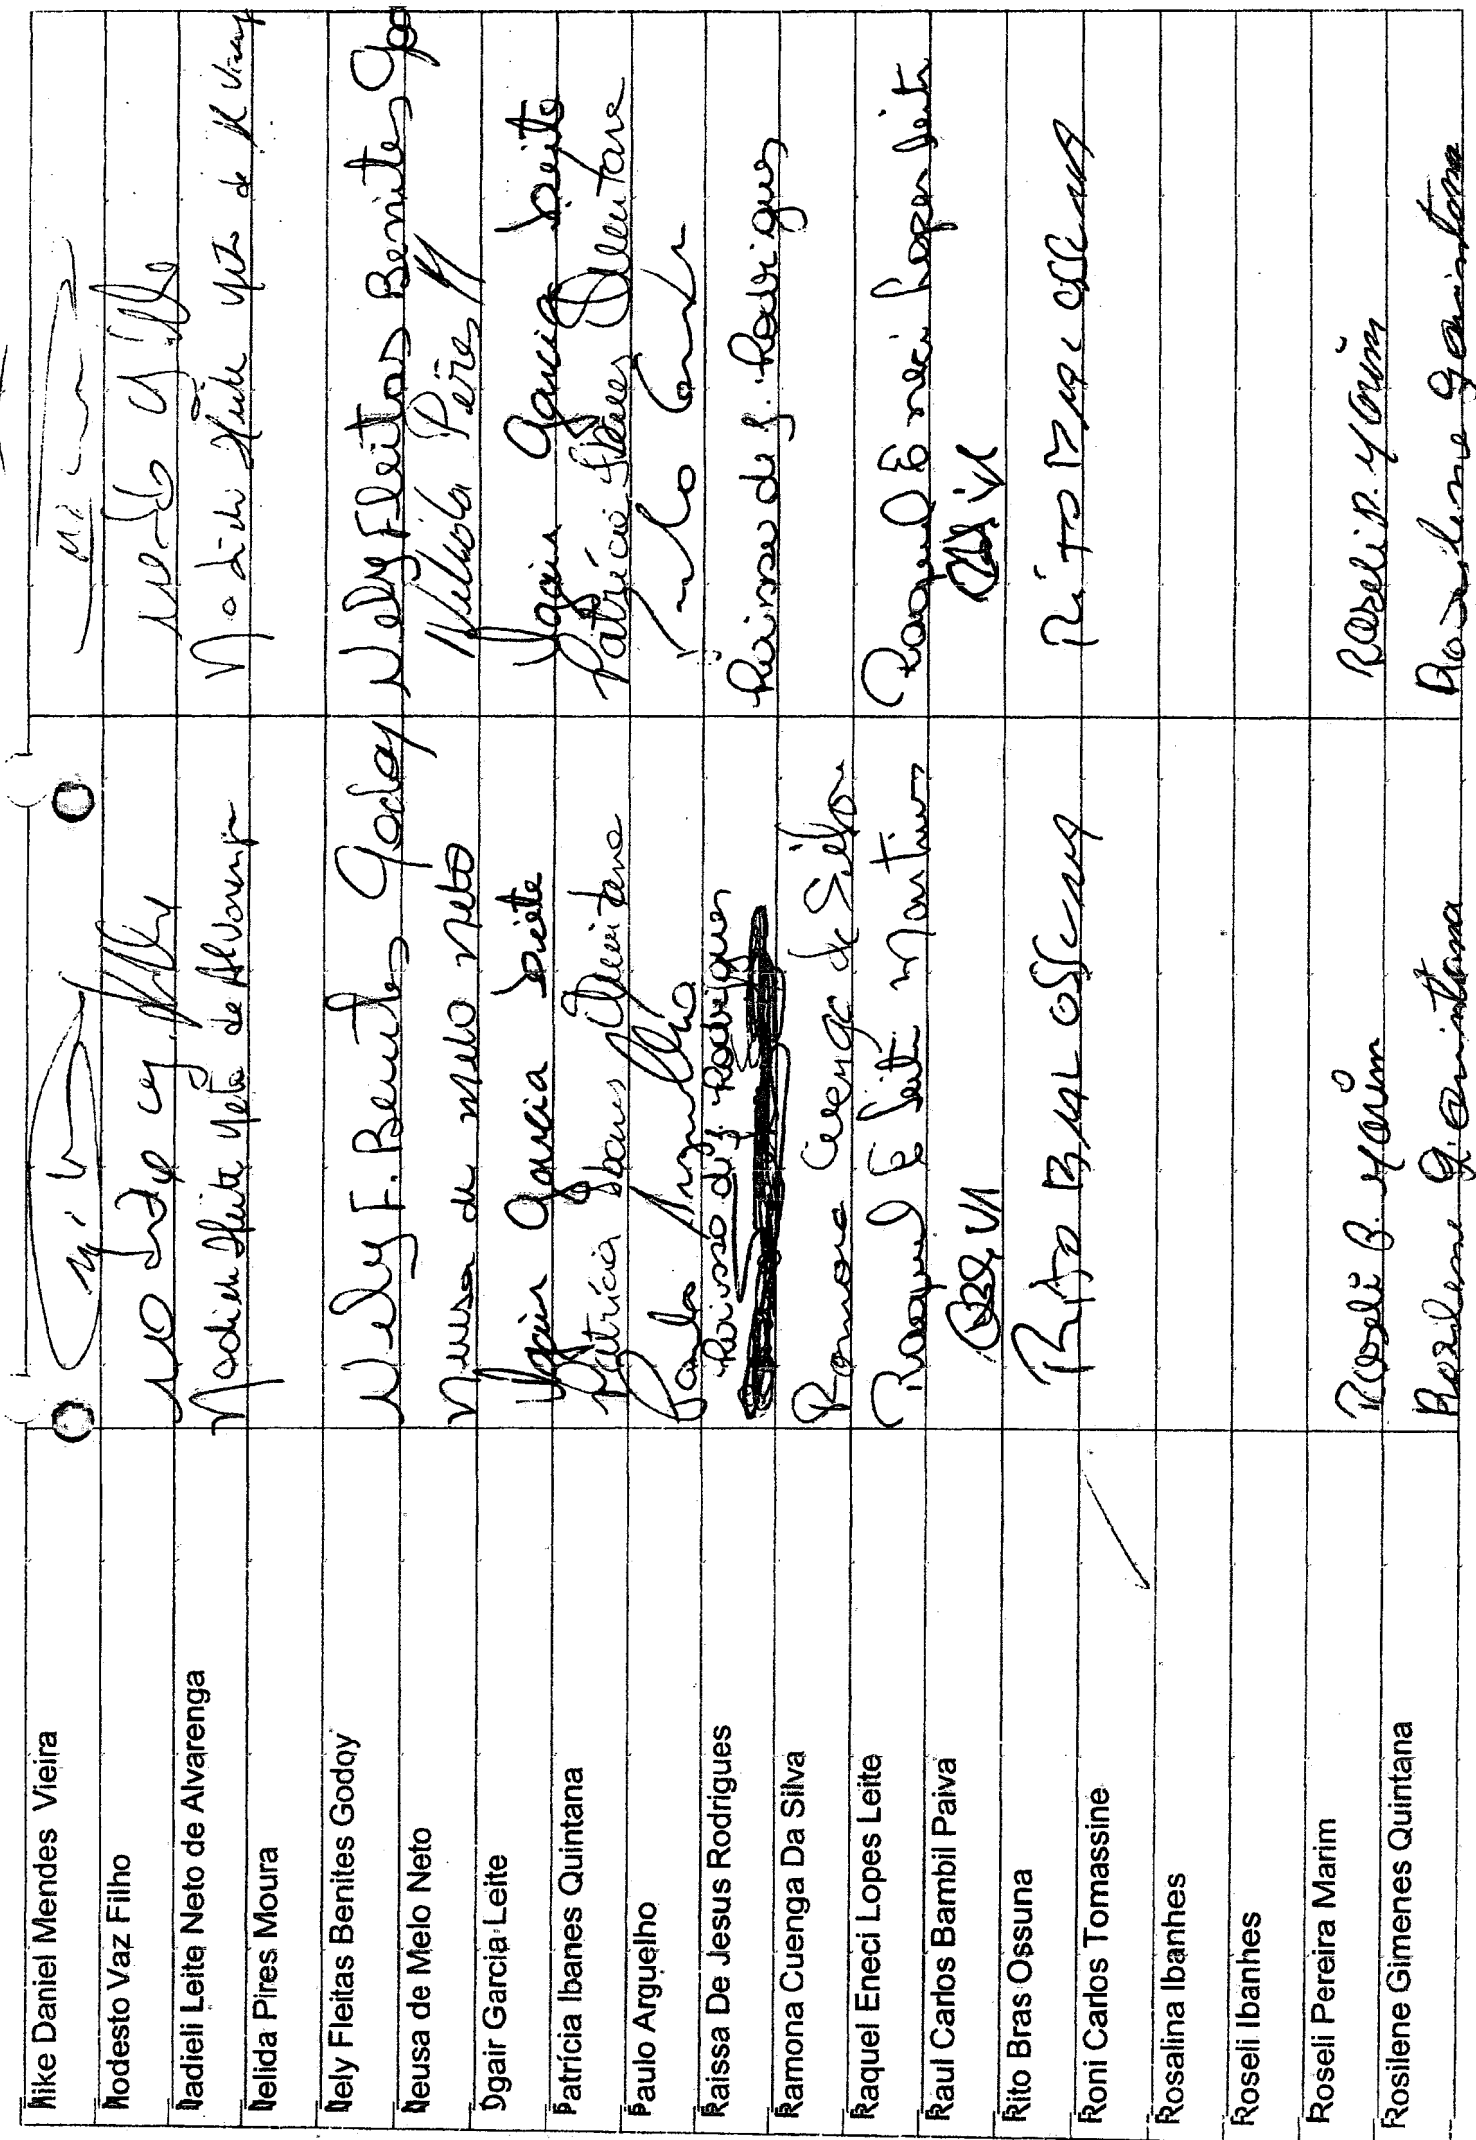 Mike Daniel Mendes Vieira
Modesto Vaz Filho
Nadieli Leite Neto de Alvarenga Nadieli Leite Neto de Alvarenga
Nelida Pires Moura
Nely Fleitas Benites Godoy Nely F. Benites Godoy Nely Fleitas Benites Go
Neusa de Melo Neto Neusa de Melo Neto
Ogair Garcia Leite Ogair Garcia Leite Ogair Garcia Leite
Patrícia Ibanes Quintana Patrícia Ibanes Quintana Patrícia Quintana
Paulo Arguelho Paulo Arguelho
Raissa De Jesus Rodrigues Raissa de J. Rodrigues Raissa de J. Rodrigues
Ramona Cuenga Da Silva Ramona Cuenga da Silva
Raquel Eneci Lopes Leite Raquel E Leite Martins Raquel Eneci Lopes Leite
Raul Carlos Bambil Paiva
Rito Bras Ossuna Rito Bras Ossuna Rito Bras Ossuna
Roni Carlos Tomassine
Rosalina Ibanhes
Roseli Ibanhes
Roseli Pereira Marim Roseli P. Marim Roseli P. Marim
Rosilene Gimenes Quintana Rosilene G. Quintana Rosilene Quintana